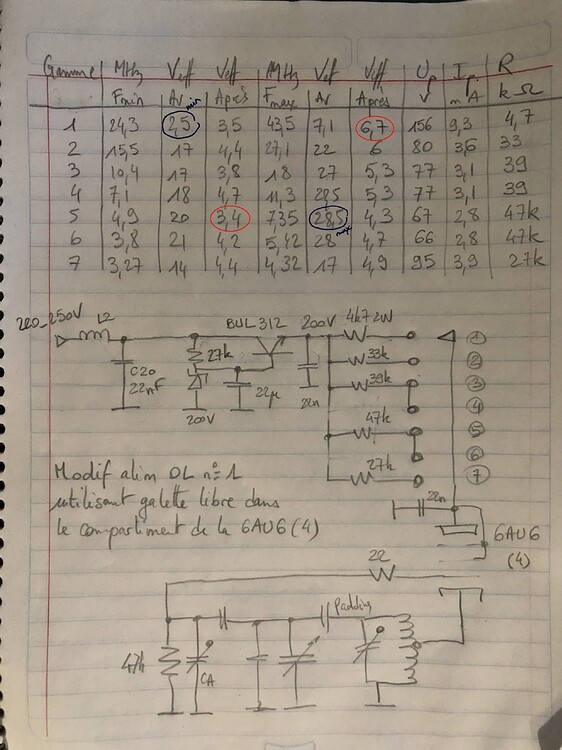 Gamme MHz Veff Veff MHz Veff Veff Up Ip R
Fmin Av min Après Fmax Av Après V mA kΩ
1 24,3 2,5 3,5 43,5 7,1 6,7 156 9,3 4,7
2 15,5 17 4,4 27,1 22 6 80 3,6 33
3 10,4 17 3,8 18 27 5,3 77 3,1 39
4 7,1 18 4,7 11,3 28,5 5,3 77 3,1 39
5 4,9 20 3,4 7,35 28,5 max 4,3 67 2,8 47k
6 3,8 21 4,2 5,42 28 4,7 66 2,8 47k
7 3,27 14 4,4 4,32 17 4,9 95 3,9 27k
220_250V L2 BUL312 200V 4k7 2W ①
27k 33k ②
C20 22nF 22µ 22n 39k ③
200V ④
47k ⑤
⑥
27k ⑦
Modif alim OL n°1
utilisant galette libre dans
le compartiment de la 6AU6 (4)
22n
6AU6
(4)
22
Padding
47k
CA